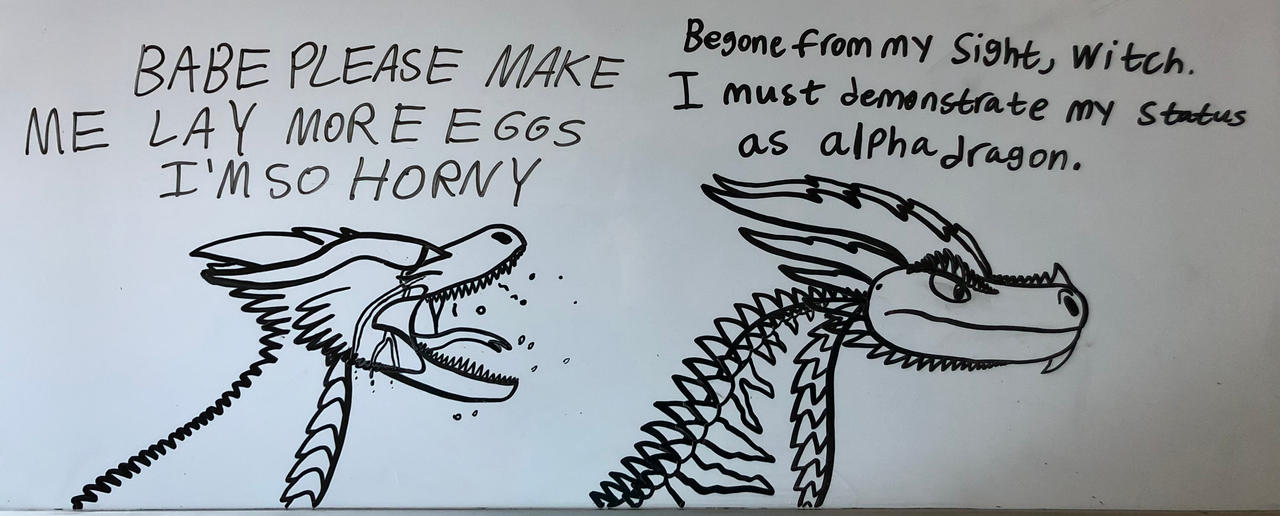 BABE PLEASE MAKE
ME LAY MORE EGGS
I'M SO HORNY
Begone from my Sight, Witch.
I must demonstrate my status
as alpha dragon.